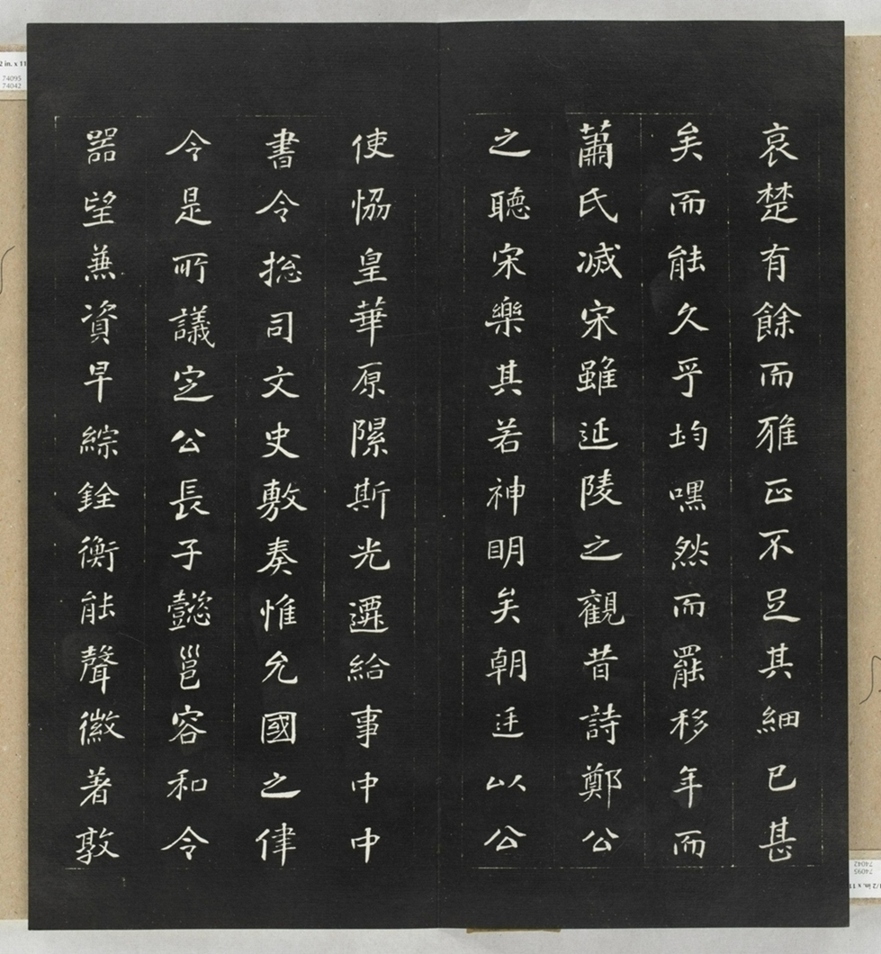 哀楚有餘而雅正不足其細已甚
矣而能久乎均嘿然而罷移年而
蕭氏滅宋雖延陵之觀昔詩鄭公
之聽宋樂其若神明矣朝廷以公
使恊皇華原隰斯光遷給事中中
書令揔司文史敷奏惟允國之律
令是所議定公長子懿邕容和令
器望蒹資早綜銓衡能聲徽著敦
2 in. x 11
74095
74042
74042
74095